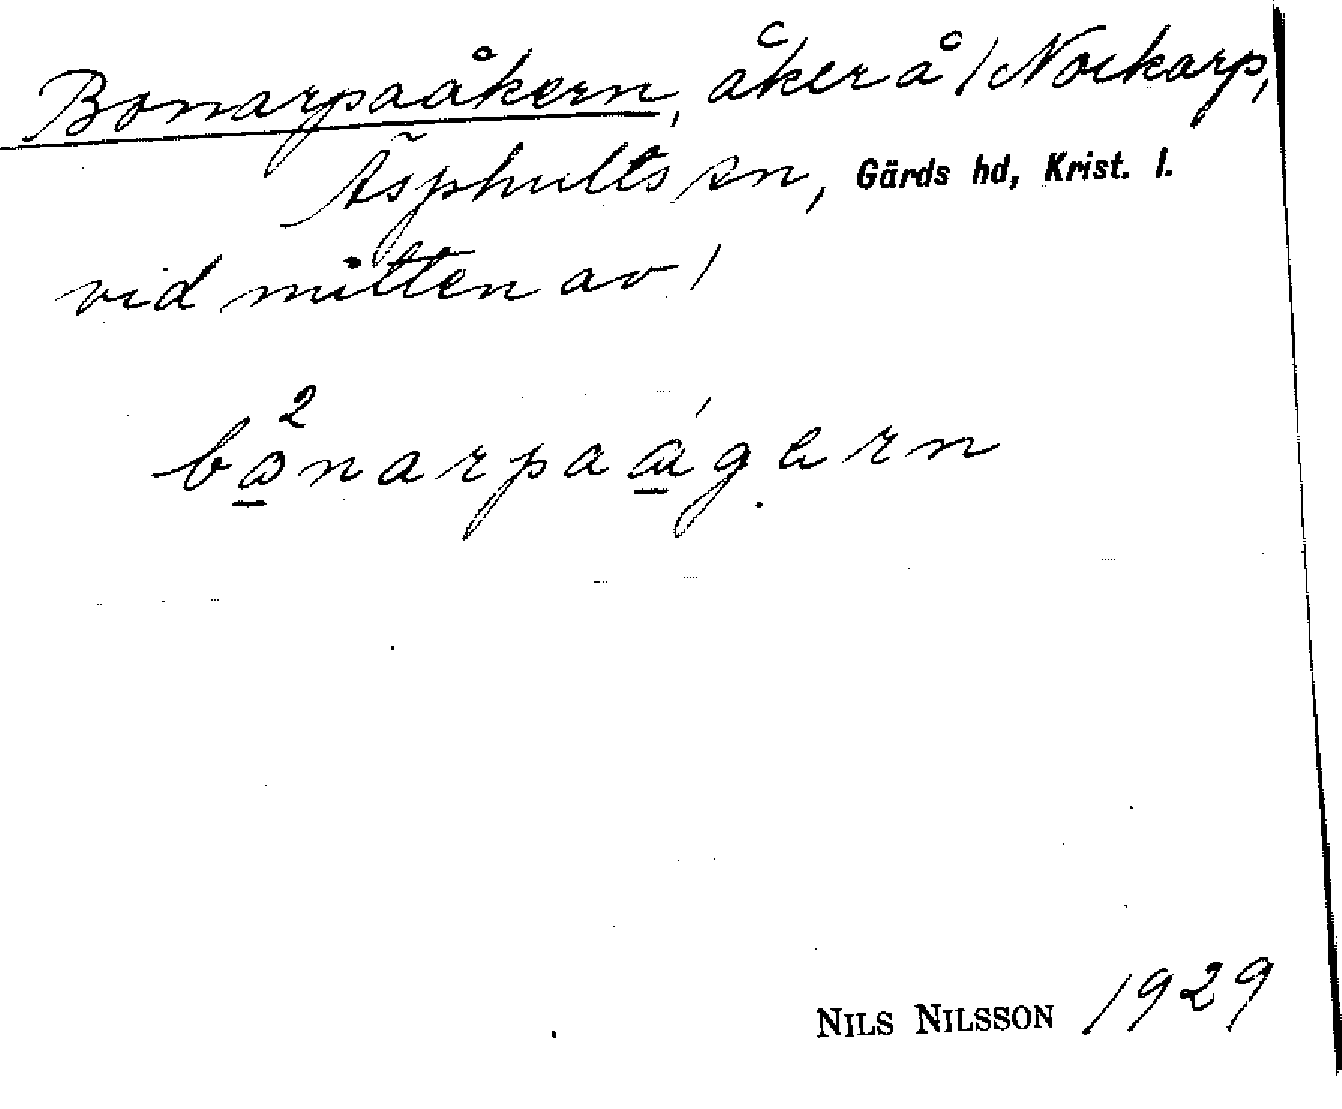 Bonarpaåkern, åker å 1 Nockarp,
Äsphults sn, Gärds hd, Krist. l.
vid mitten av 1
bo²narpaág̣ern
NILS NILSSON 1929